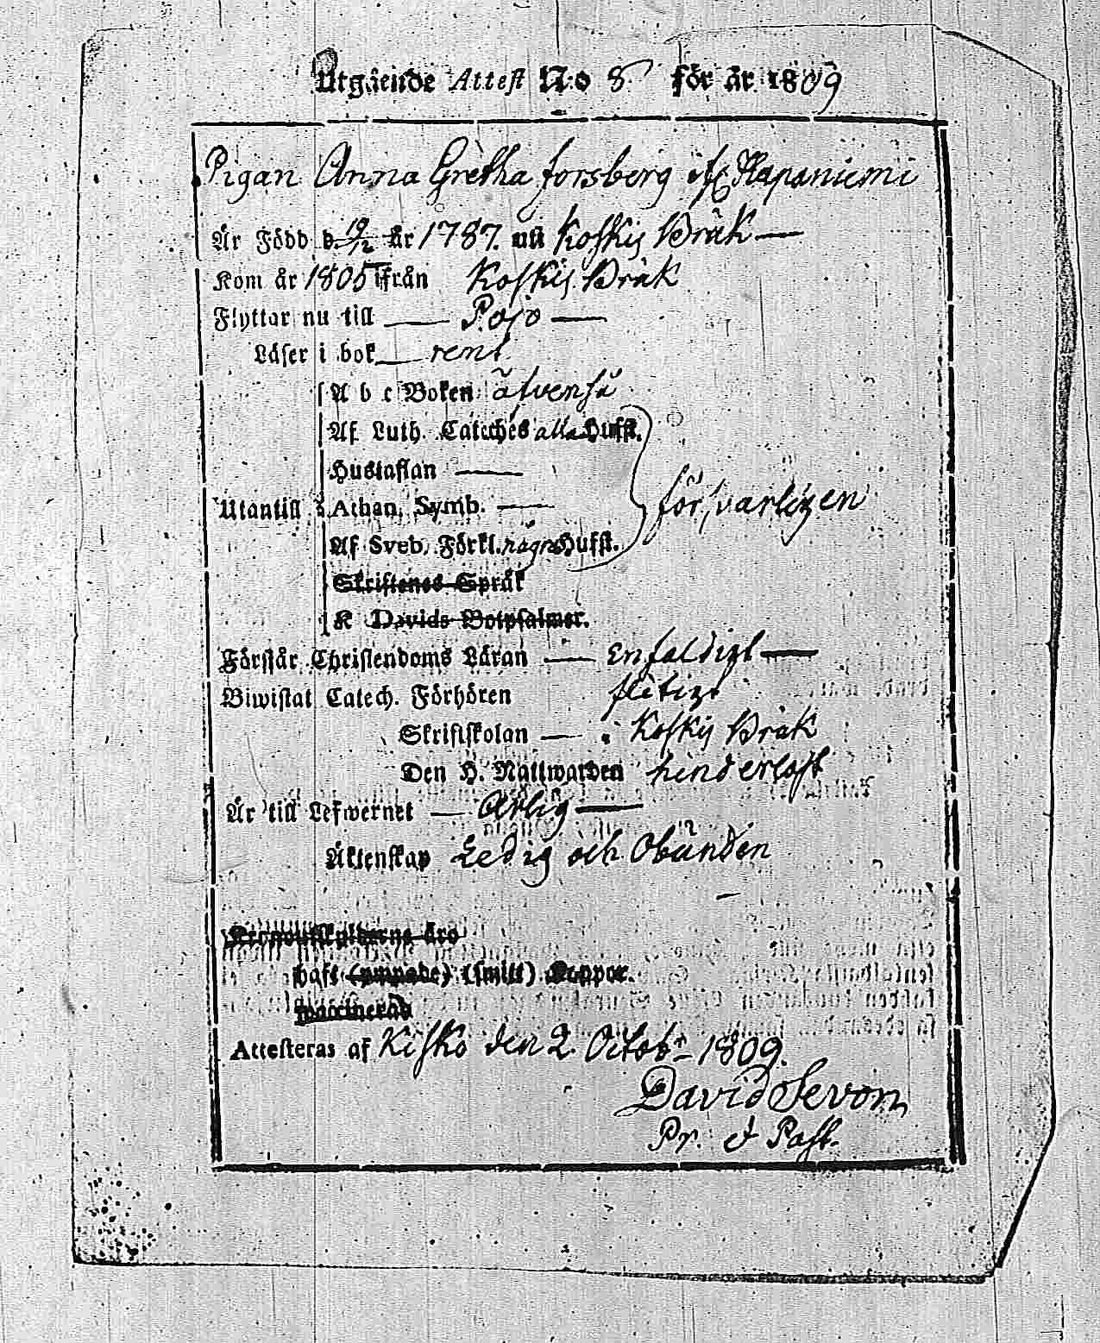 Utgående Attest N:o 8. för år 1809
Pigan Anna Gretha forsberg ifr Hapaniemi
Är Född d. 19/2 år 1787. uti Koskis Bråk —
Kom år 1805 ifrån Koskis Bråk
Flyttar nu till — Pojo —
Läser i bok — rent
A b c Boken äfvenså
Af Luth. Catches alla Hufst.
Hustaflan —
Utantill Athan. Symb. — försvarligen
Af Sveb. Förkl. några Hufst.
Skriftenes Språk
K Davids Botpsalmer.
Förstår Christendoms Läran — Enfaldigt —
Biwistat Catech. Förhören flitigt
Skriftskolan — i Koskis Bråk
Den H. Nattwarden hinderlöst
Är till Lefwernet — Ärlig —
Äktenskap Ledig och Obunden
Kronoutskylderna äro
haft (ympade) (smitt) Koppor.
waccinerad
Attesteras af Kisko den 2. Octobr 1809.
David Sevon,
Pr. & Past.